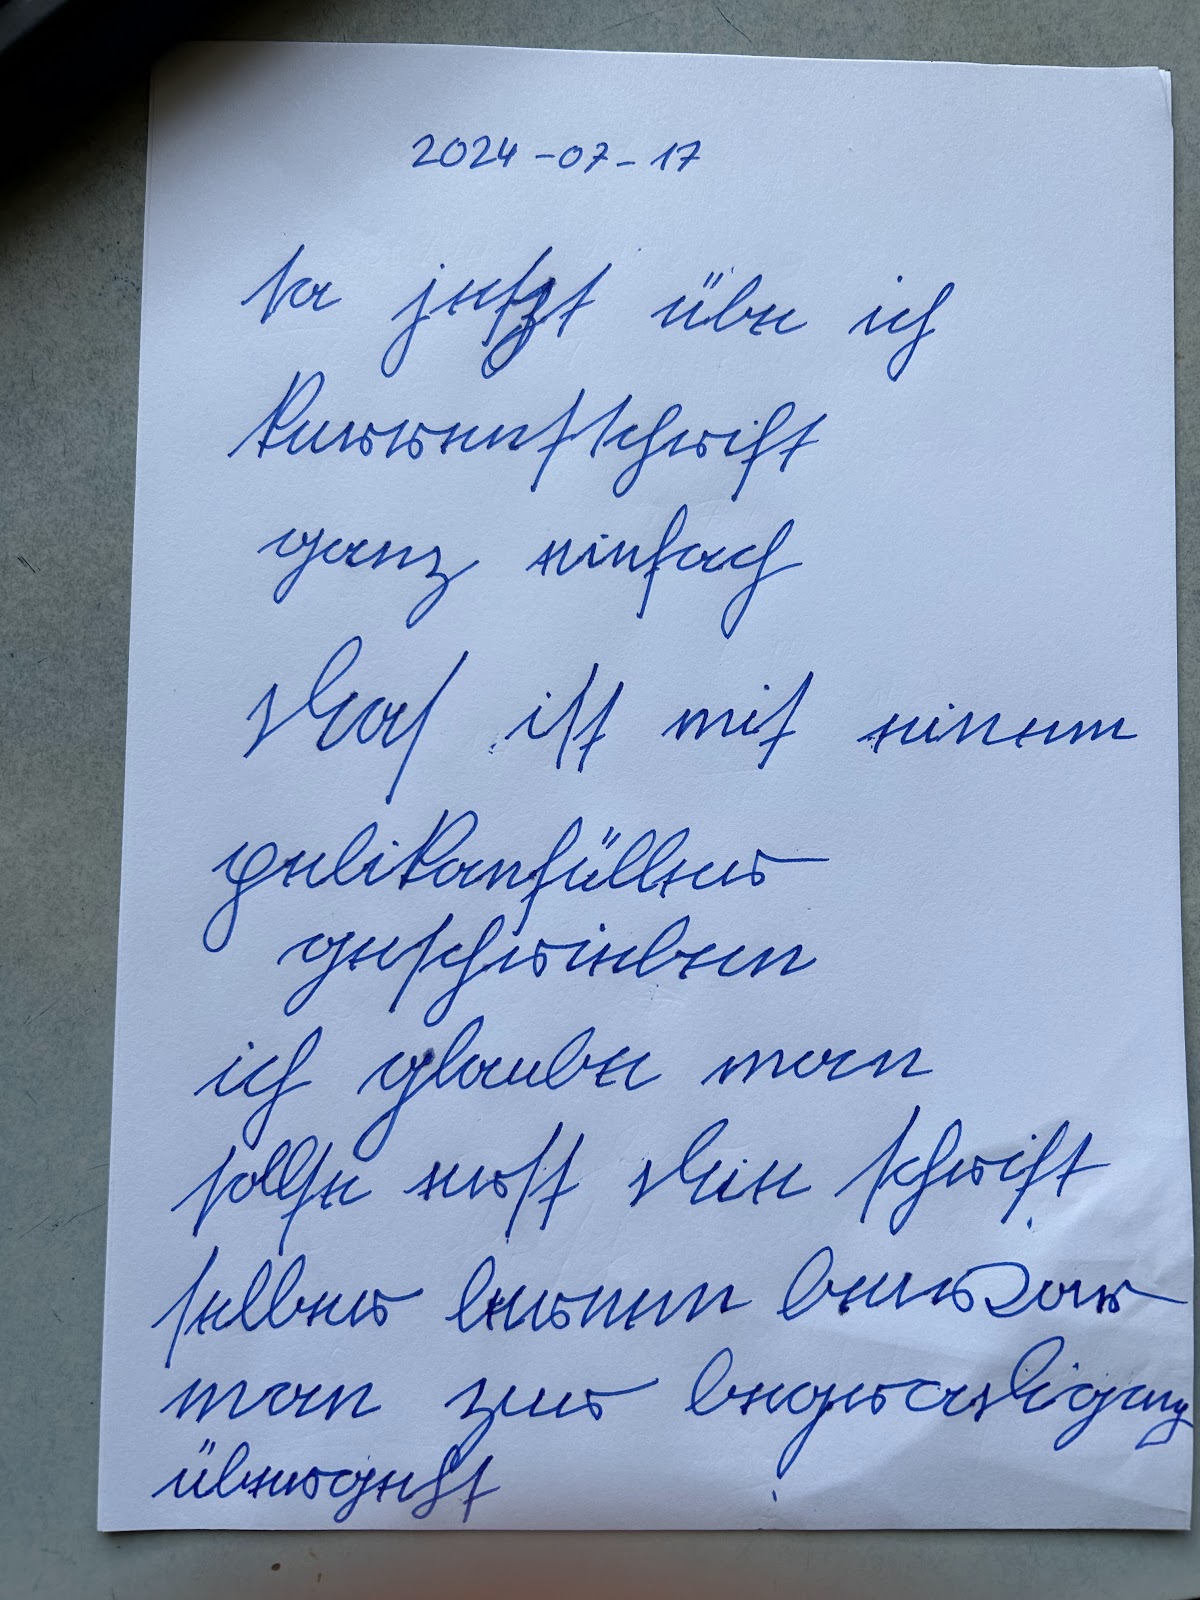 2024-07-17
so jetzt übe ich
kurrentschrift
ganz einfach
das ist mit einem
pelikanfüller
geschrieben
ich glaube man
sollte erst die schrift
selber lernen bevor
man zur begradigung
übergeht